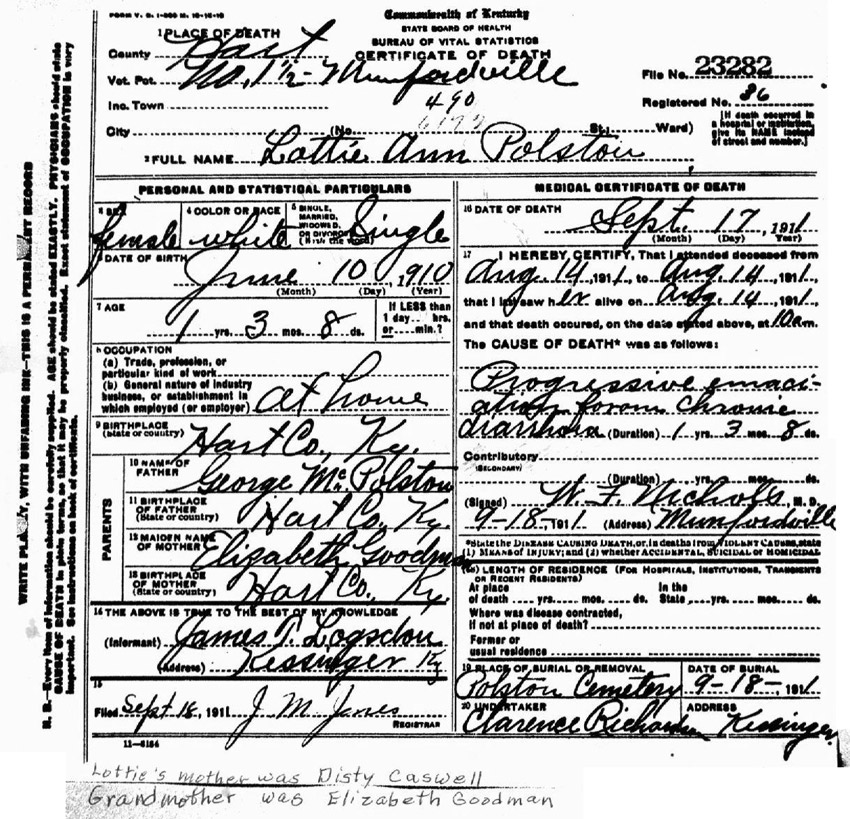 FORM V. S. 1-
Commonwealth of Kentucky
STATE BOARD OF HEALTH
BUREAU OF VITAL STATISTICS
CERTIFICATE OF DEATH
1 PLACE OF DEATH
County Hart
Vot. Pct. No. 1 1/2 - Munfordville
Inc. Town 490
City (No. St.; Ward)
File No. 23282
Registered No. 36
[If death occurred in a hospital or institution, give its NAME instead of street and number.]
2 FULL NAME Lottie Ann Polston
PERSONAL AND STATISTICAL PARTICULARS
3 SEX female
4 COLOR OR RACE white
5 SINGLE, MARRIED, WIDOWED, OR DIVORCED (Write the word) Single
6 DATE OF BIRTH June 10, 1910
(Month) (Day) (Year)
7 AGE 1 yrs. 3 mos. 8 ds.
If LESS than 1 day... hrs. or... min.?
8 OCCUPATION
(a) Trade, profession, or particular kind of work
(b) General nature of industry business, or establishment in which employed (or employer) at home
9 BIRTHPLACE (State or country) Hart Co., Ky.
PARENTS
10 NAME OF FATHER George Mc Polston
11 BIRTHPLACE OF FATHER (State or country) Hart Co. Ky.
12 MAIDEN NAME OF MOTHER Elizabeth Goodman
13 BIRTHPLACE OF MOTHER (State or country) Hart Co. Ky.
14 THE ABOVE IS TRUE TO THE BEST OF MY KNOWLEDGE
(Informant) James T. Logsdon
(Address) Kessinger Ky
15
Filed Sept 18, 1911 J. M. Jones
REGISTRAR
11-5184
MEDICAL CERTIFICATE OF DEATH
16 DATE OF DEATH Sept. 17, 1911
(Month) (Day) (Year)
17 I HEREBY CERTIFY, That I attended deceased from
Aug. 14, 1911, to Aug. 14, 1911,
that I last saw her alive on Aug. 14, 1911,
and that death occured, on the date stated above, at 10 a.m.
The CAUSE OF DEATH* was as follows:
Progressive emaci-
ation from chronic
diarrhoea (Duration) 1 yrs. 3 mos. 8 ds.
Contributory
(SECONDARY)
(Duration) yrs. mos. ds.
(Signed) W. F. Nicholls, M. D.
9-18-, 1911 (Address) Munfordville
*State the DISEASE CAUSING DEATH, or, in deaths from VIOLENT CAUSES, state
(1) MEANS OF INJURY; and (2) whether ACCIDENTAL, SUICIDAL or HOMICIDAL
(18) LENGTH OF RESIDENCE (FOR HOSPITALS, INSTITUTIONS, TRANSIENTS OR RECENT RESIDENTS)
At place of death yrs. mos. ds. In the State yrs. mos. ds.
Where was disease contracted,
if not at place of death?
Former or
usual residence
19 PLACE OF BURIAL OR REMOVAL Polston Cemetery
DATE OF BURIAL 9-18-, 1911
20 UNDERTAKER Clarence Richardson
ADDRESS Kessinger
WRITE PLAINLY, WITH UNFADING INK—THIS IS A PERMANENT RECORD
N. B.—Every item of information should be carefully supplied. AGE should be stated EXACTLY. PHYSICIANS should state
CAUSE OF DEATH in plain terms, so that it may be properly classified. Exact statement of OCCUPATION is very
important. See instructions on back of certificate.
Lottie's mother was Disty Caswell
Grandmother was Elizabeth Goodman